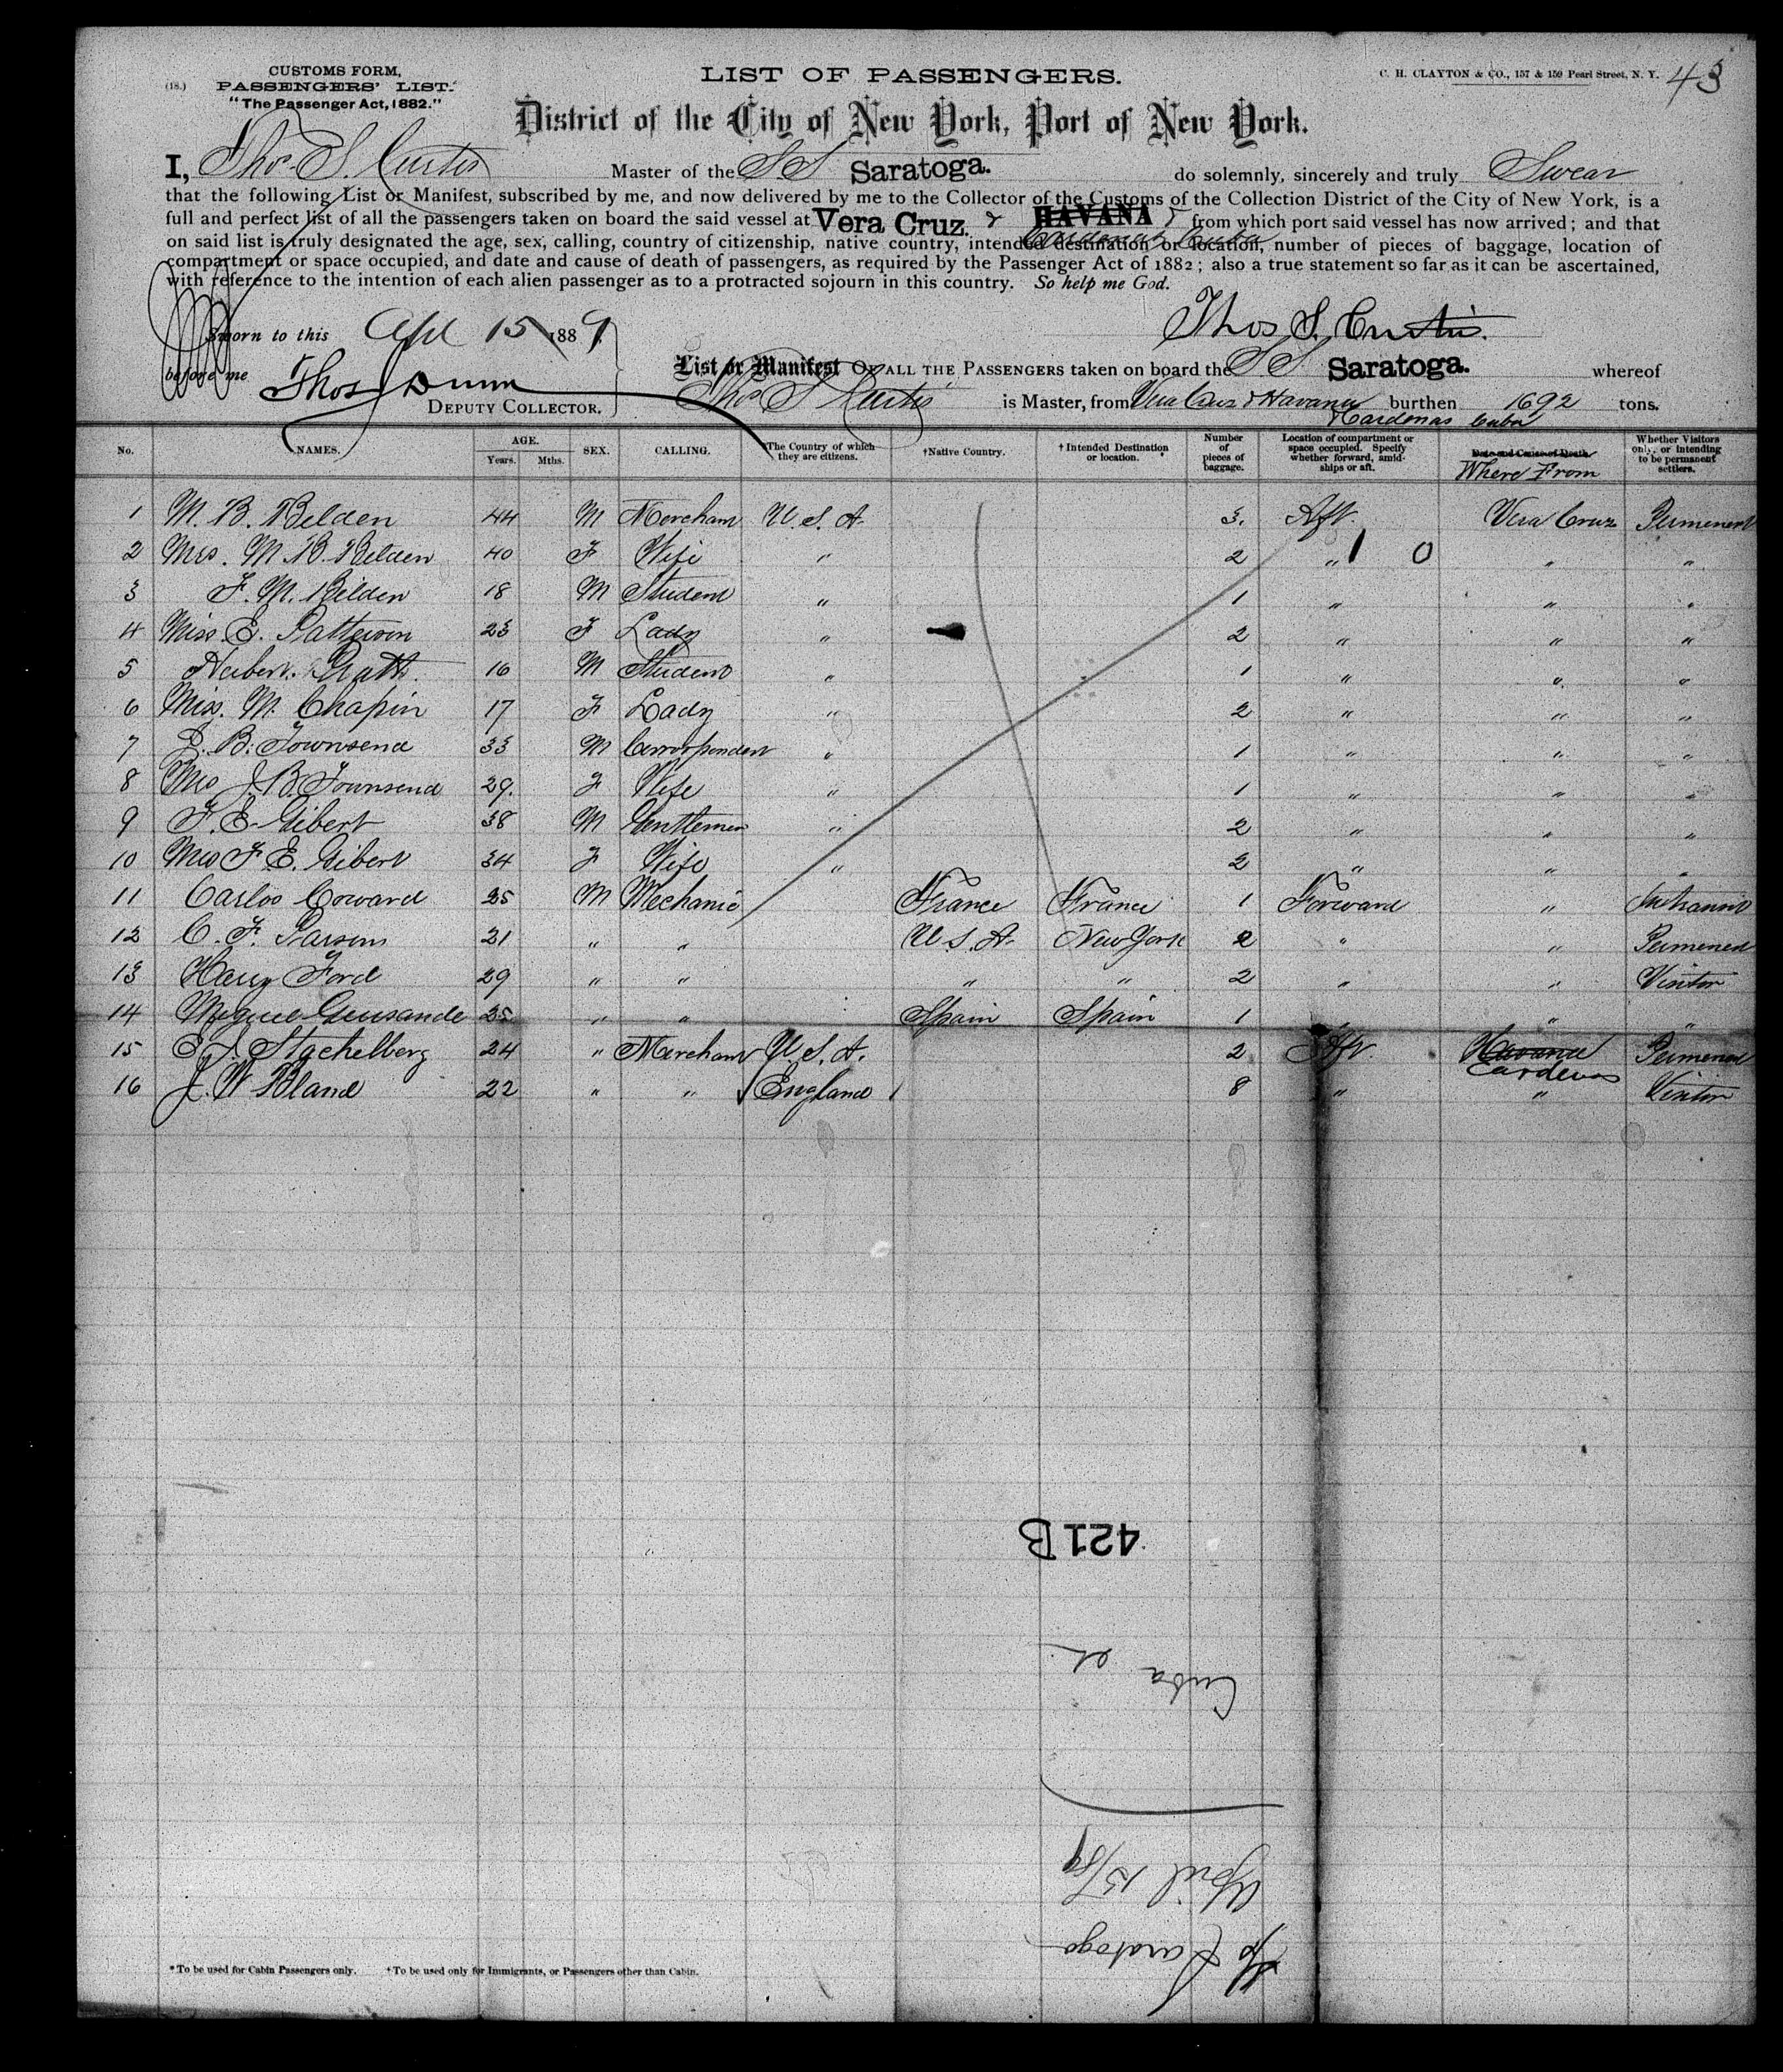 (18.) CUSTOMS FORM, LIST OF PASSENGERS. C. H. CLAYTON & CO., 157 & 159 Pearl Street, N. Y. 43
PASSENGERS' LIST.
"The Passenger Act, 1882."
District of the City of New York, Port of New York.
I, Thos. S. Curtis Master of the SS Saratoga. do solemnly, sincerely and truly Swear
that the following List or Manifest, subscribed by me, and now delivered by me to the Collector of the Customs of the Collection District of the City of New York, is a
full and perfect list of all the passengers taken on board the said vessel at Vera Cruz. & HAVANA & from which port said vessel has now arrived; and that
Cardenas Cuba
on said list is truly designated the age, sex, calling, country of citizenship, native country, intended destination or location, number of pieces of baggage, location of
compartment or space occupied, and date and cause of death of passengers, as required by the Passenger Act of 1882; also a true statement so far as it can be ascertained,
with reference to the intention of each alien passenger as to a protracted sojourn in this country. So help me God.
Sworn to this Apl 15 1889 Thos S. Curtis.
before me Thos J Dunn List or Manifest OF ALL THE PASSENGERS taken on board the SS Saratoga. whereof
DEPUTY COLLECTOR. Thos S Curtis is Master, from Vera Cruz & Havana burthen 1692 tons.
& Cardenas Cuba
No. NAMES. AGE. Years. Mths. SEX. CALLING. *The Country of which they are citizens. †Native Country. †Intended Destination or location. Number of pieces of baggage. Location of compartment or space occupied. Specify whether forward, amidships or aft. Date and Cause of Death. Where From Whether Visitors only, or intending to be permanent settlers.
1 M. B. Belden 44 M Merchant U. S. A. 3. Aft. Vera Cruz Permenent
2 Mrs. M. B. Belden 40 F Wife " 2 " 1 0 " "
3 F. M. Belden 18 M Student " 1 " " "
4 Miss E. Patterson 23 F Lady " 2 " " "
5 Herbert 16 M Student " 1 " " "
6 Miss. M. Chapin 17 F Lady " 2 " " "
7 J. B. Townsend 33 M Correspondent " 1 " " "
8 Mrs J. B. Townsend 29. F Wife " 1 " " "
9 F. E. Gibert 38 M Gentleman " 2 " " "
10 Mrs F. E. Gibert 34 F Wife " 2 " " "
11 Carlos Coward 25 M Mechanic France France 1 Forward " In transit
12 C. F. Parsons 21 " " U. S. A. New York 2 " " Permenent
13 Harry Ford 29 " " " " 2 " " Visitor
14 Miguel 25 " " Spain Spain 1 " " "
15 Stachelberg 24 " Merchant U. S. A. 2 Aft. Havana Permenent
Cardenas
16 J. W Bland 22 " " England 8 " " Visitor
421B
Cuba et
April 15/89
S/s Saratoga
*To be used for Cabin Passengers only. †To be used only for Immigrants, or Passengers other than Cabin.